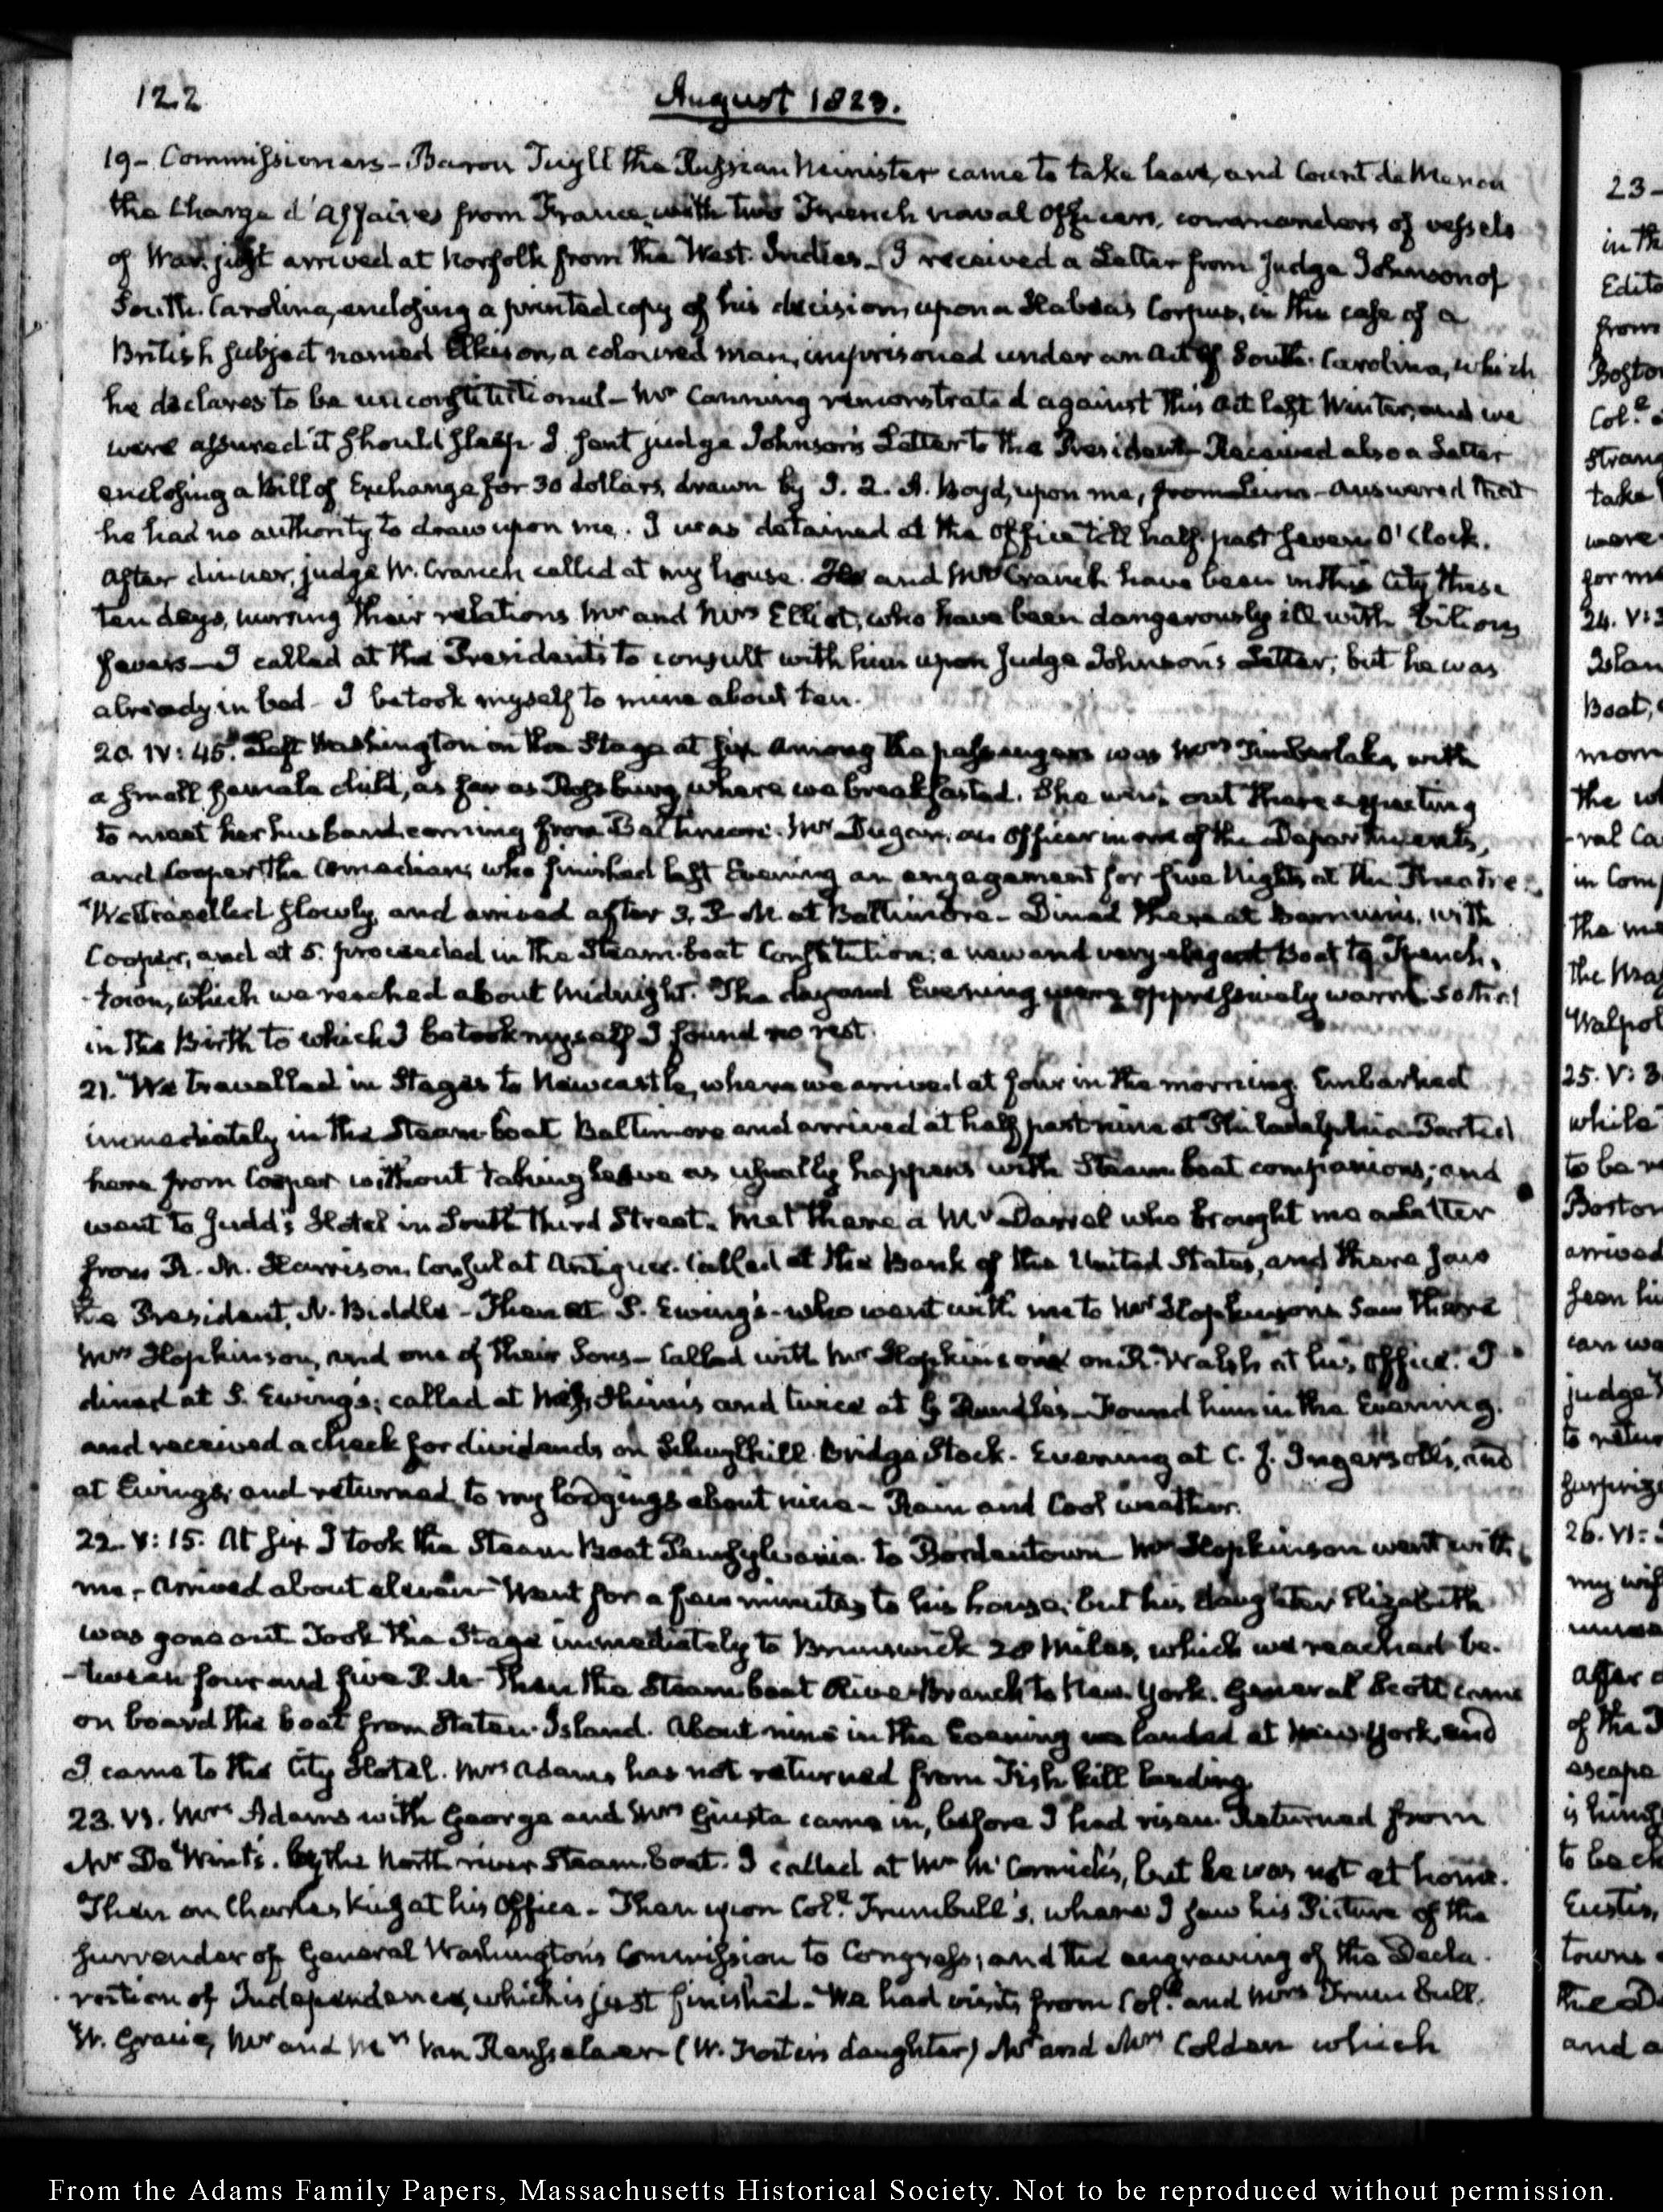 122
August 1823.
19 - Commissioners - Baron Tuyll the Russian Minister came to take leave, and Count de Menou
the Chargé d'Affaires from France, with two French naval officers, commanders of vessels
of War, just arrived at Norfolk from the West-Indies - I received a Letter from Judge Johnson of
South-Carolina, enclosing a printed copy of his decision, upon a Habeas Corpus, in the case of a
British subject named Elkison, a coloured man, imprisoned under an act of South-Carolina, which
he declares to be unconstitutional - Mr Canning remonstrated against this act last Winter, and we
were assured it should sleep. I sent judge Johnson's Letter to the President - Received also a Letter
enclosing a Bill of Exchange for 30 dollars, drawn by J. Q. A. Boyd, upon me, from - answered that
he had no authority to draw upon me. I was detained at the office till half past seven O'Clock.
After dinner, judge W. Cranch called at my house. He and Mrs Cranch have been in this City these
ten days, nursing their relations Mr and Mrs Elliot, who have been dangerously ill with bilious
fevers - I called at the President's to consult with him upon Judge Johnson's Letter; but he was
already in bed - I betook myself to mine about ten.
20. IV: 45. Left Washington in the Stage at six. Among the passengers was Mrs Timberlake, with
a small female child, as far as Rossburg, where we breakfasted. She was out there expecting
to meet her husband coming from Baltimore. Mr Dugan, an officer in one of the Departments,
and Cooper the Comedian, who finished last Evening an engagement for five Nights at the Theatre.
We travelled slowly, and arrived after 3. P.M. at Baltimore - Dined there at Barnum's, with
Cooper, and at 5. proceeded in the Steam-boat Constitution; a new and very elegant Boat to French-
-town, which we reached about midnight. The day and Evening were oppressively warm, so that
in the Birth to which I betook myself I found no rest.
21. We travelled in Stages to Newcastle, where we arrived at four in the morning. Embarked
immediately in the Steam-boat Baltimore and arrived at half past nine at Philadelphia. Parted
here from Cooper without taking leave as usually happens with Steam boat companions; and
went to Judd's Hotel in South third Street. Met there a Mr Darrel who brought me a Letter
from R. M. Harrison, Consul at Antigua. Called at the Bank of the United States, and there saw
the President, N. Biddle - Then at S. Ewing's - who went with me to Mr Hopkinson's. Saw there
Mrs Hopkinson, and one of their Sons - Called with Mr Hopkinson on R. Walsh at his office. I
dined at S. Ewing's; called at and twice at G Rundle's - Found him in the Evening.
and received a check for dividends on Schuylkill Bridge Stock. Evening at C. J. Ingersoll's, and
at Ewing's; and returned to my lodgings about nine - Rain and Cool weather.
22. V: 15. At six I took the Steam Boat Pennsylvania to Bordentown - Mr Hopkinson went with
me - Arrived about eleven - Went for a few minutes to his house; but his daughter Elizabeth
was gone out. Took the Stage immediately to Brunswick 28 Miles, which we reached be-
-tween four and five P.M. Then the Steam boat River Branch to New-York. General Scott came
on board the boat from Staten-Island. About nine in the Evening we landed at New-York, and
I came to the City Hotel. Mrs Adams has not returned from Fish kill Landing
23. VI. Mrs Adams with George and Mrs Giusta came in, before I had risen. Returned from
Mr De Wint's. by the North river Steam-boat. I called at Mr McCormick's, but he was not at home.
Then on Charles King at his Office - Then upon Coll. Trumbull's, where I saw his Picture of the
surrender of General Washington's Commission to Congress; and the engraving of the Decla-
-ration of Independence, which is just finished - We had visits from Coll. and Mrs Trumbull.
W. Gracie, Mr and Mrs Van Rensselaer (W. Foster's daughter) Mr and Mrs Colden which
From the Adams Family Papers, Massachusetts Historical Society. Not to be reproduced without permission.